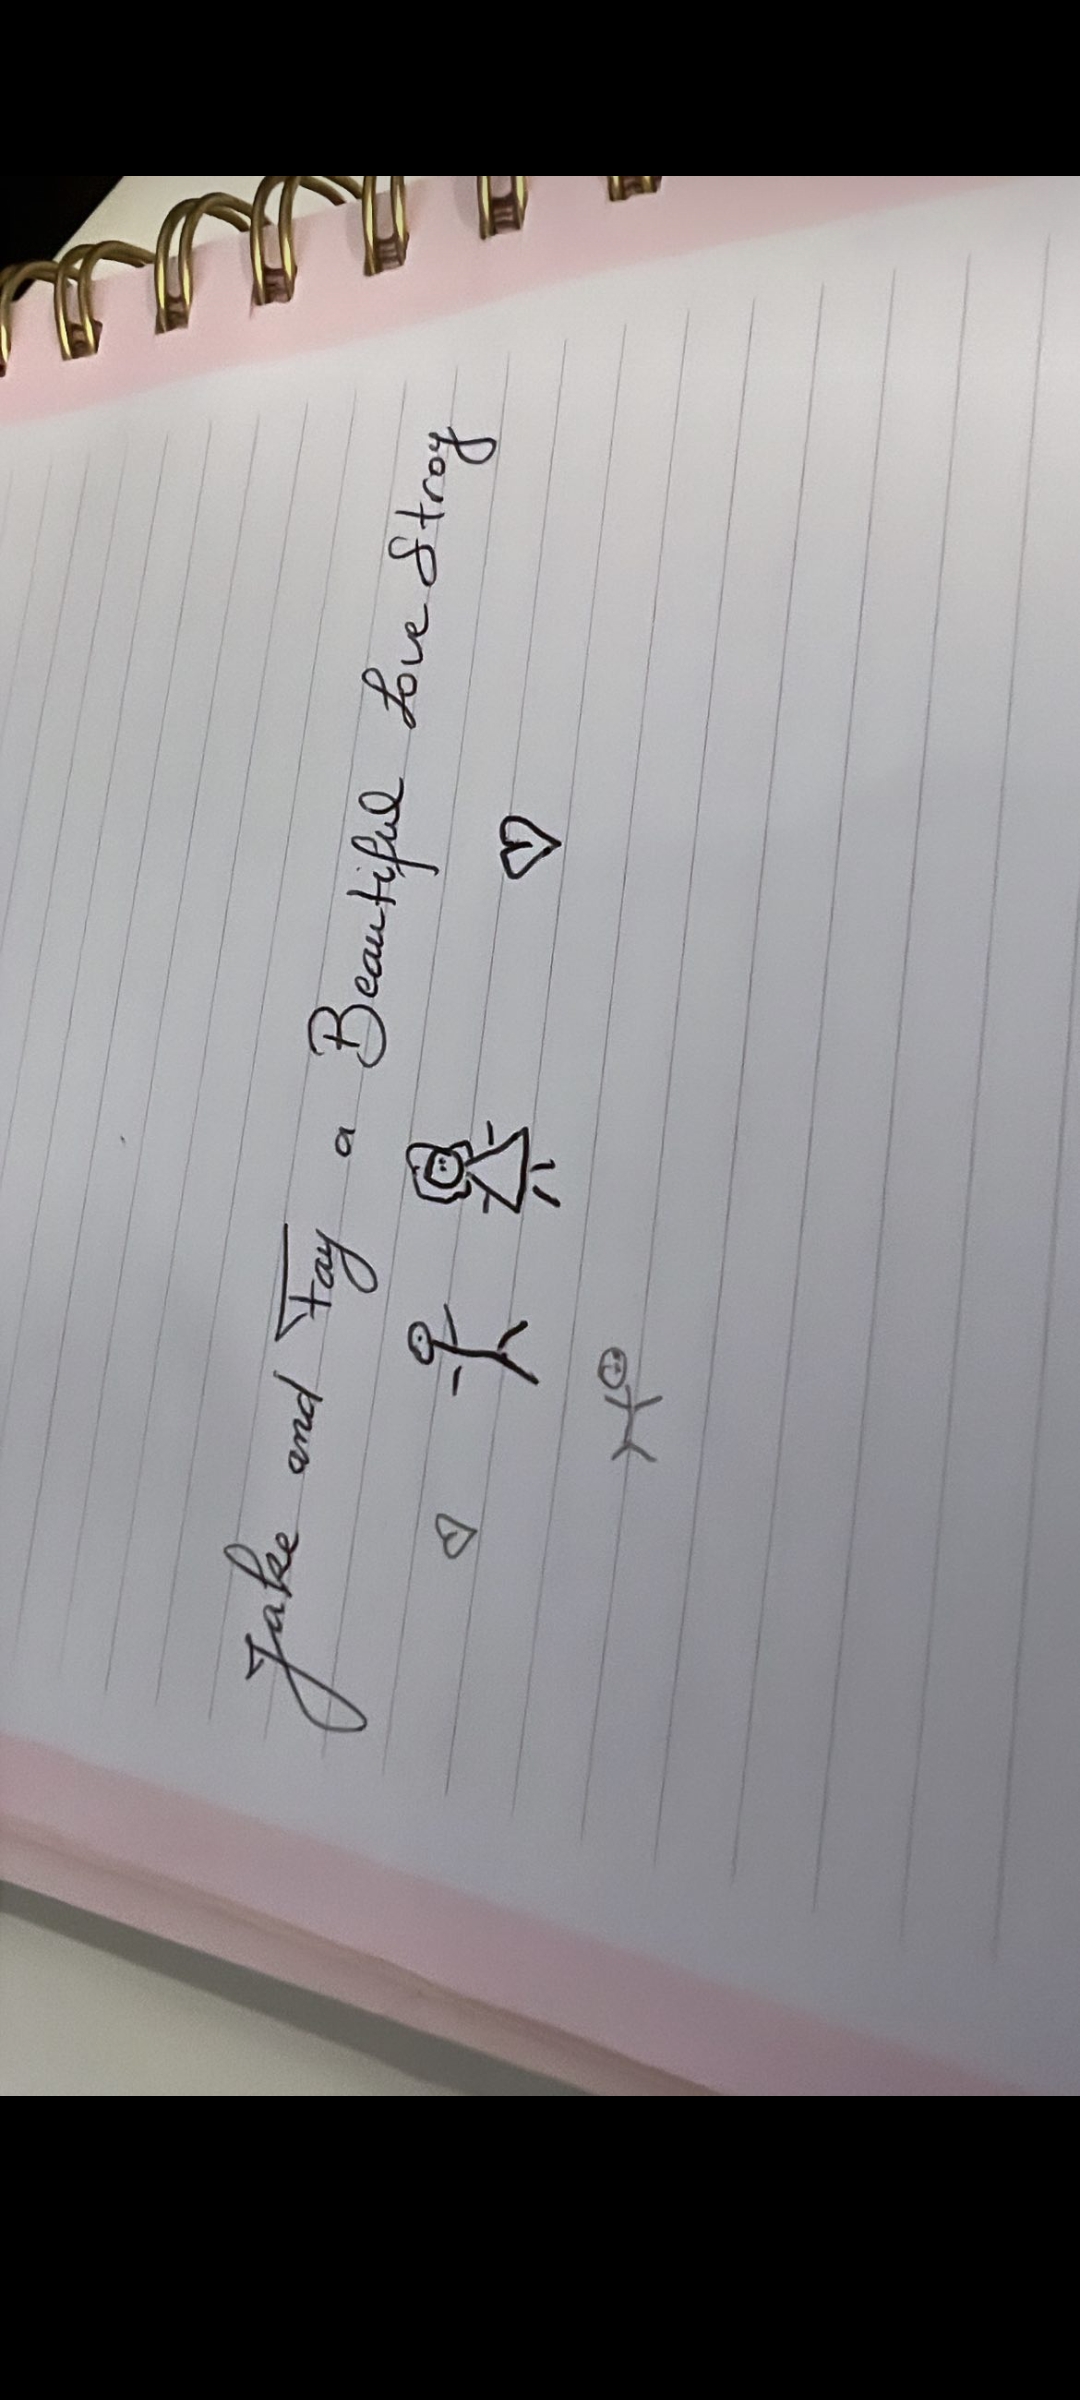 Jake and Fay a Beautiful Love Stroy